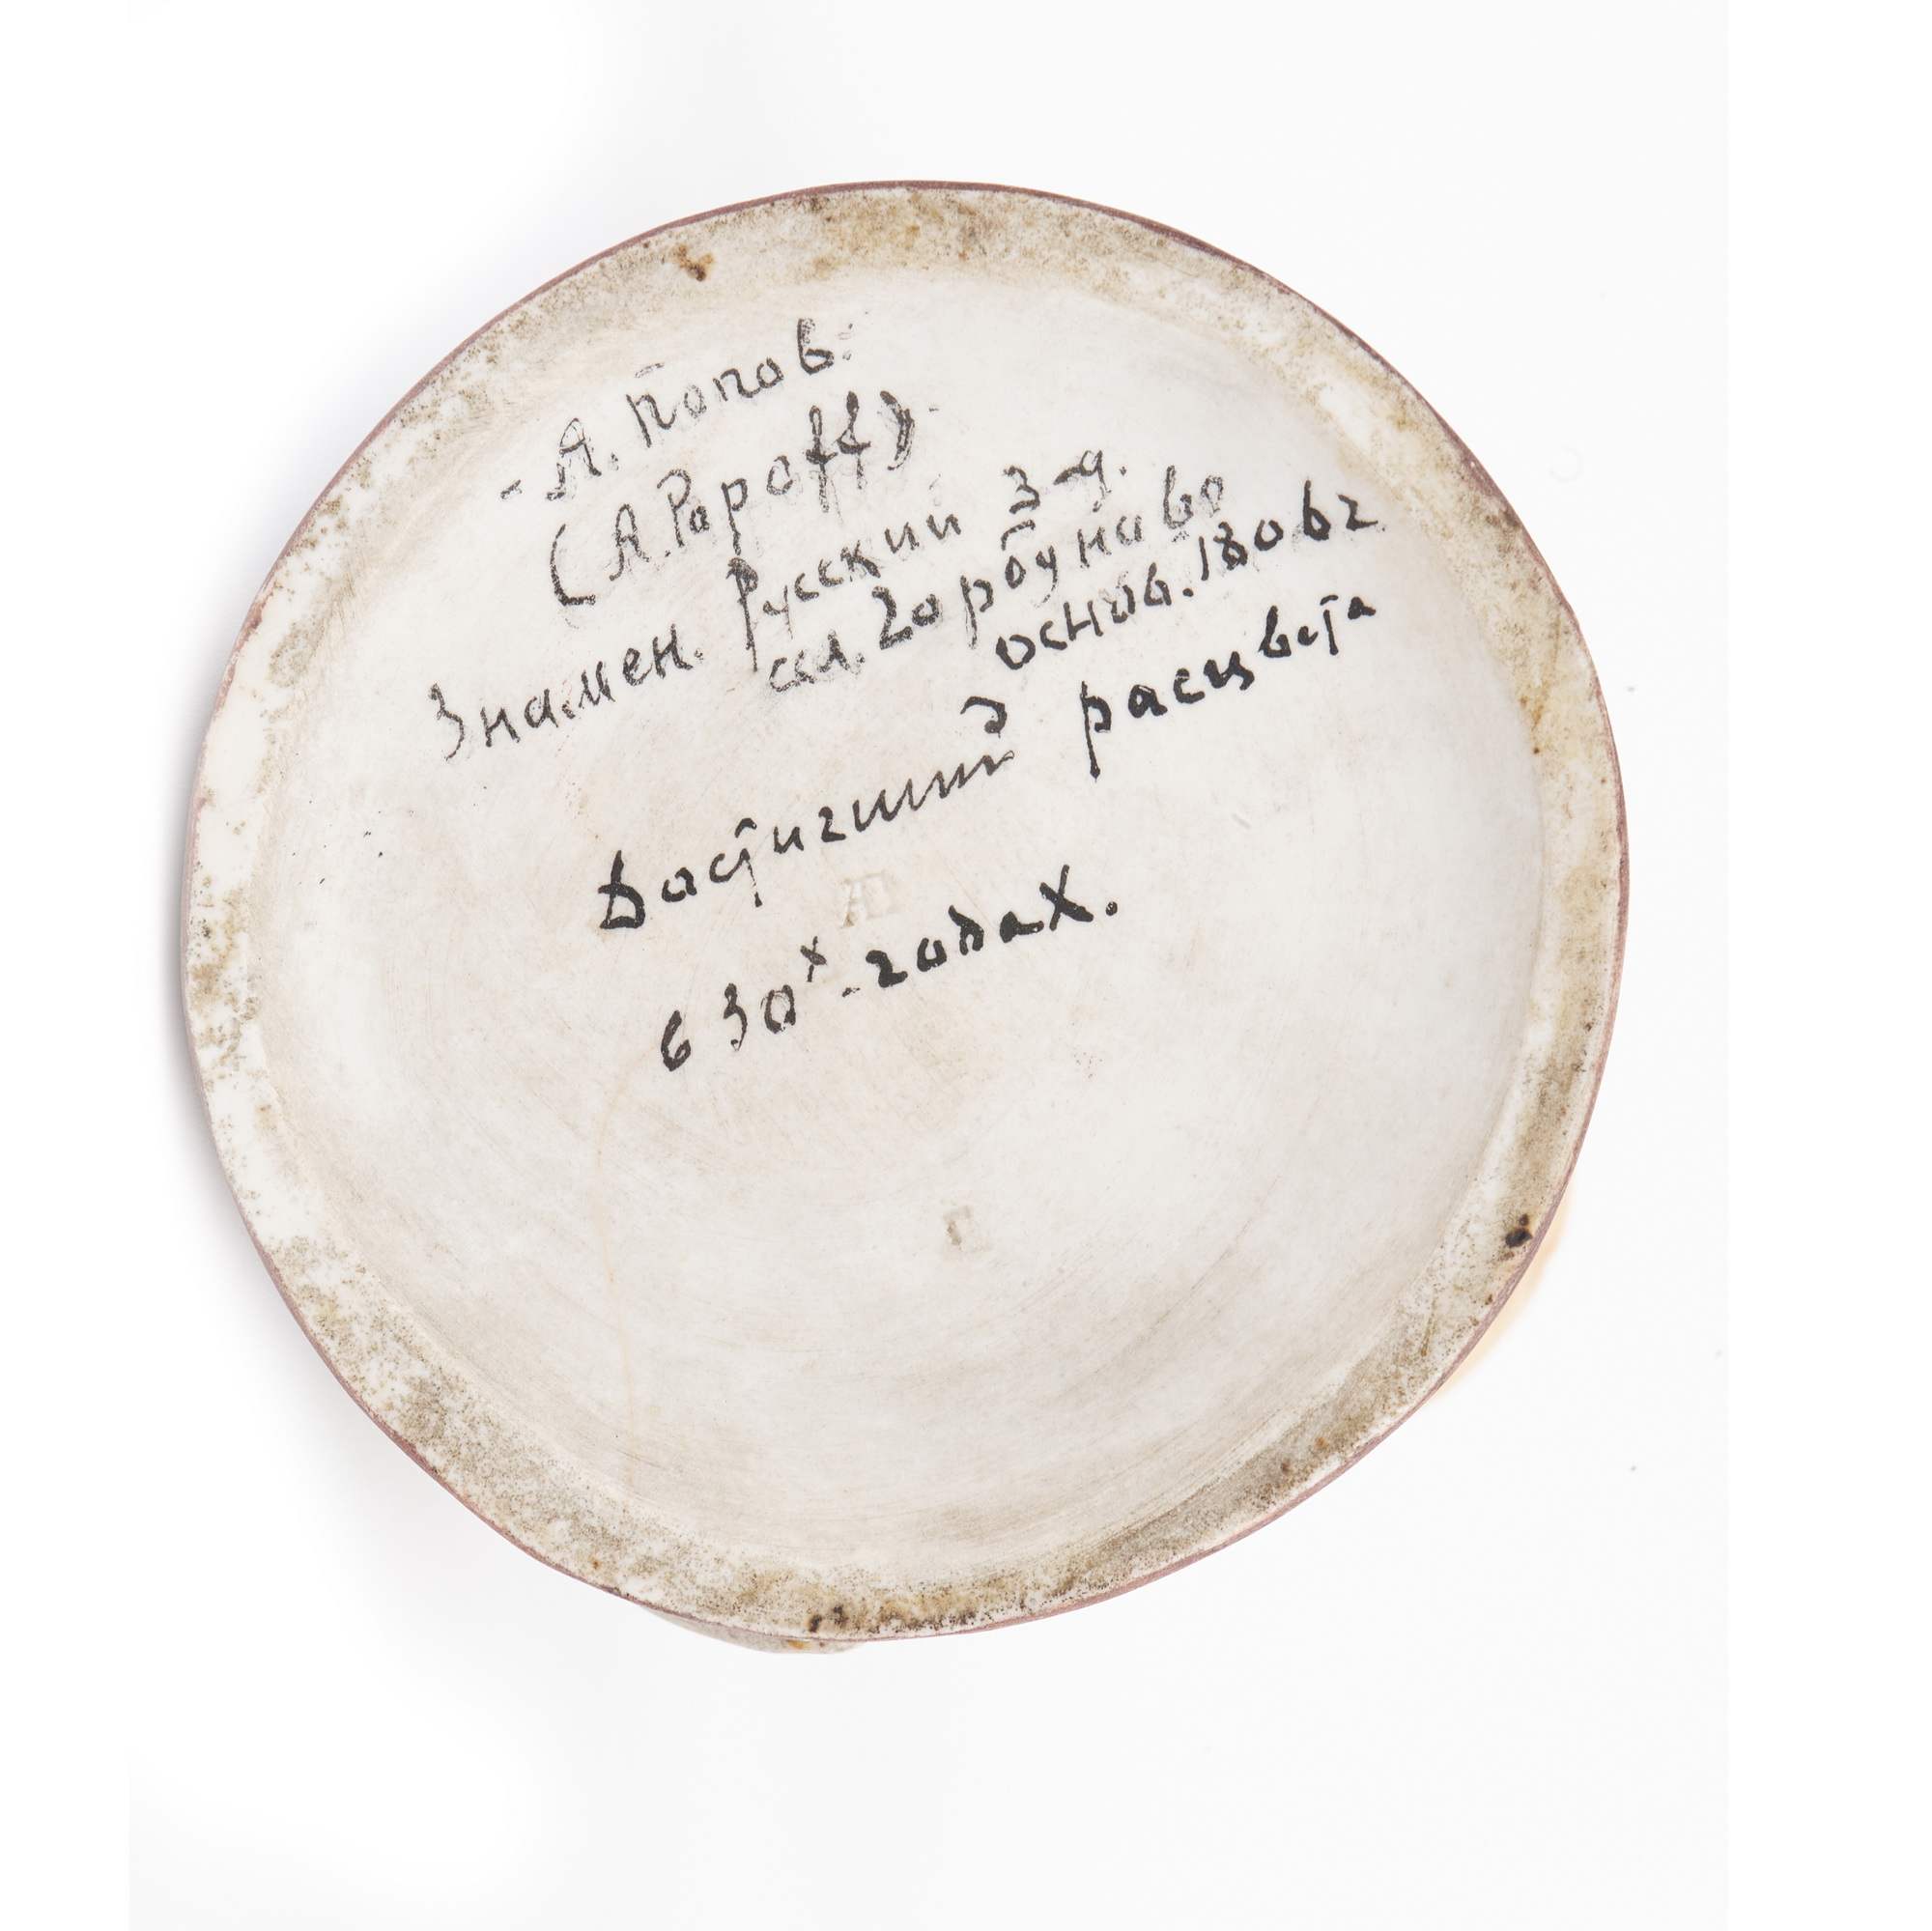 - А. Попов.
(A. Popoff)
Знамен. Русский З-д.
сел. Горбуново
основ. 1806г
Достигший расцвета
в 30х - годах.
АП
Г